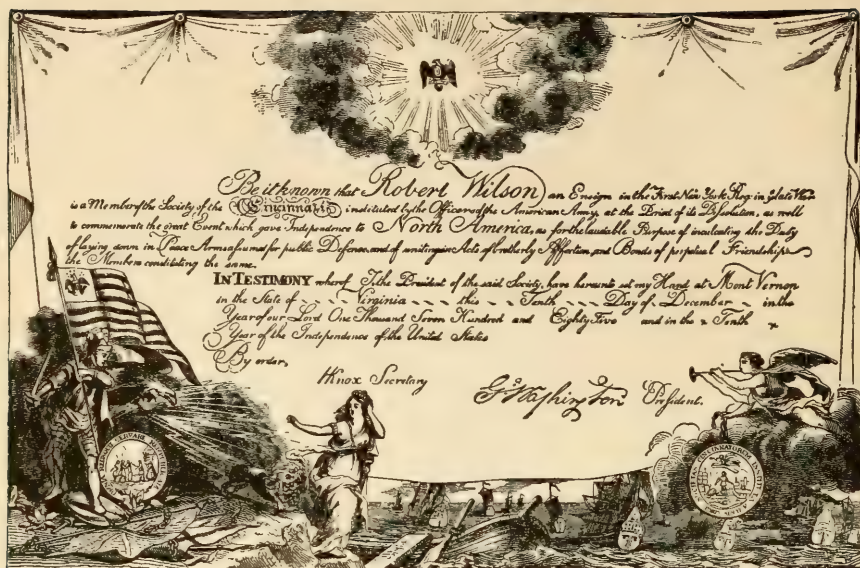 Be it known that Robert Wilson an Ensign in the First New York Reg: in ye late War
is a Member of the Society of the Cincinnati; instituted by the Officers of the American Army, at the Period of its Dissolution, as well
to commemorate the great Event which gave Independence to North America, as for the laudable Purpose of inculcating the Duty
of laying down in Peace Arms assumed for public Defence, and of uniting in Acts of brotherly Affection, and Bonds of perpetual Friendship
the Members constituting the same.
IN TESTIMONY whereof I, the President of the said Society, have hereunto set my Hand at Mont Vernon
in the State of Virginia this Tenth Day of December in the
Year of our Lord One Thousand Seven Hundred and Eighty Five and in the Tenth
Year of the Independence of the United States
By order,
HKnox Secretary
Go Washington President.